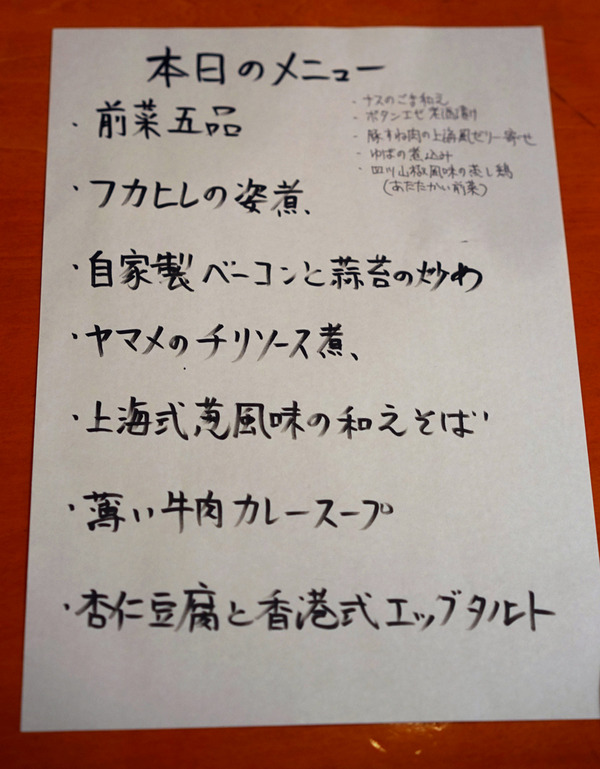 本日のメニュー
・前菜五品
- ナスのごま和え
- ボタンエビ老酒漬け
- 豚すね肉の上海風ゼリー寄せ
- ゆばの煮込み
- 四川山椒風味の蒸し鶏
(あたたかい前菜)
・フカヒレの姿煮
・自家製ベーコンと蒜苔の炒め
・ヤマメのチリソース煮
・上海式葱風味の和えそば
・薄い牛肉カレースープ
・杏仁豆腐と香港式エッグタルト